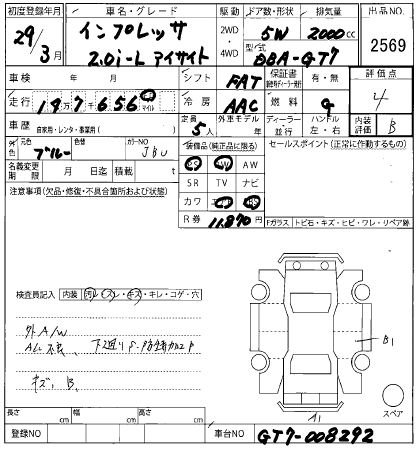 初度登録年月 車名・グレード 駆動 ドア数・形状 排気量 出品NO
29年3月 インプレッサ 2.0i-L アイサイト 2WD・4WD 5W 2000cc 2569
型式 DBA-GT7
車検 年 月 シフト FAT 保証書 有・無 評価点 4
走行 14万7千656 km マイル 冷房 AAC 燃料 G
車歴 自家用・レンタ・事業用( ) 定員 5人 外車モデル 年 ディーラー・並行 ハンドル 左・右 内装評価 B
外色 元色 ブルー 色替 カラーNO JBU 装備品(純正品に限る) セールスポイント(正常に作動するもの)
PS PW AW
名義変更期限 月 日迄 積載 t SR TV ナビ
注意事項(欠品・修復・不具合箇所および状態) カワ エアB
R券 11,870円
Fガラス トビ石・キズ・ヒビ・ワレ・リペア跡
検査員記入 内装 汚レ・スレ・キズ・キレ・コゲ・穴
外A/W
下廻り
キズ B1
B1
A1
スペア
長さ cm 幅 cm 高さ cm
登録NO 車台NO GT7-008292